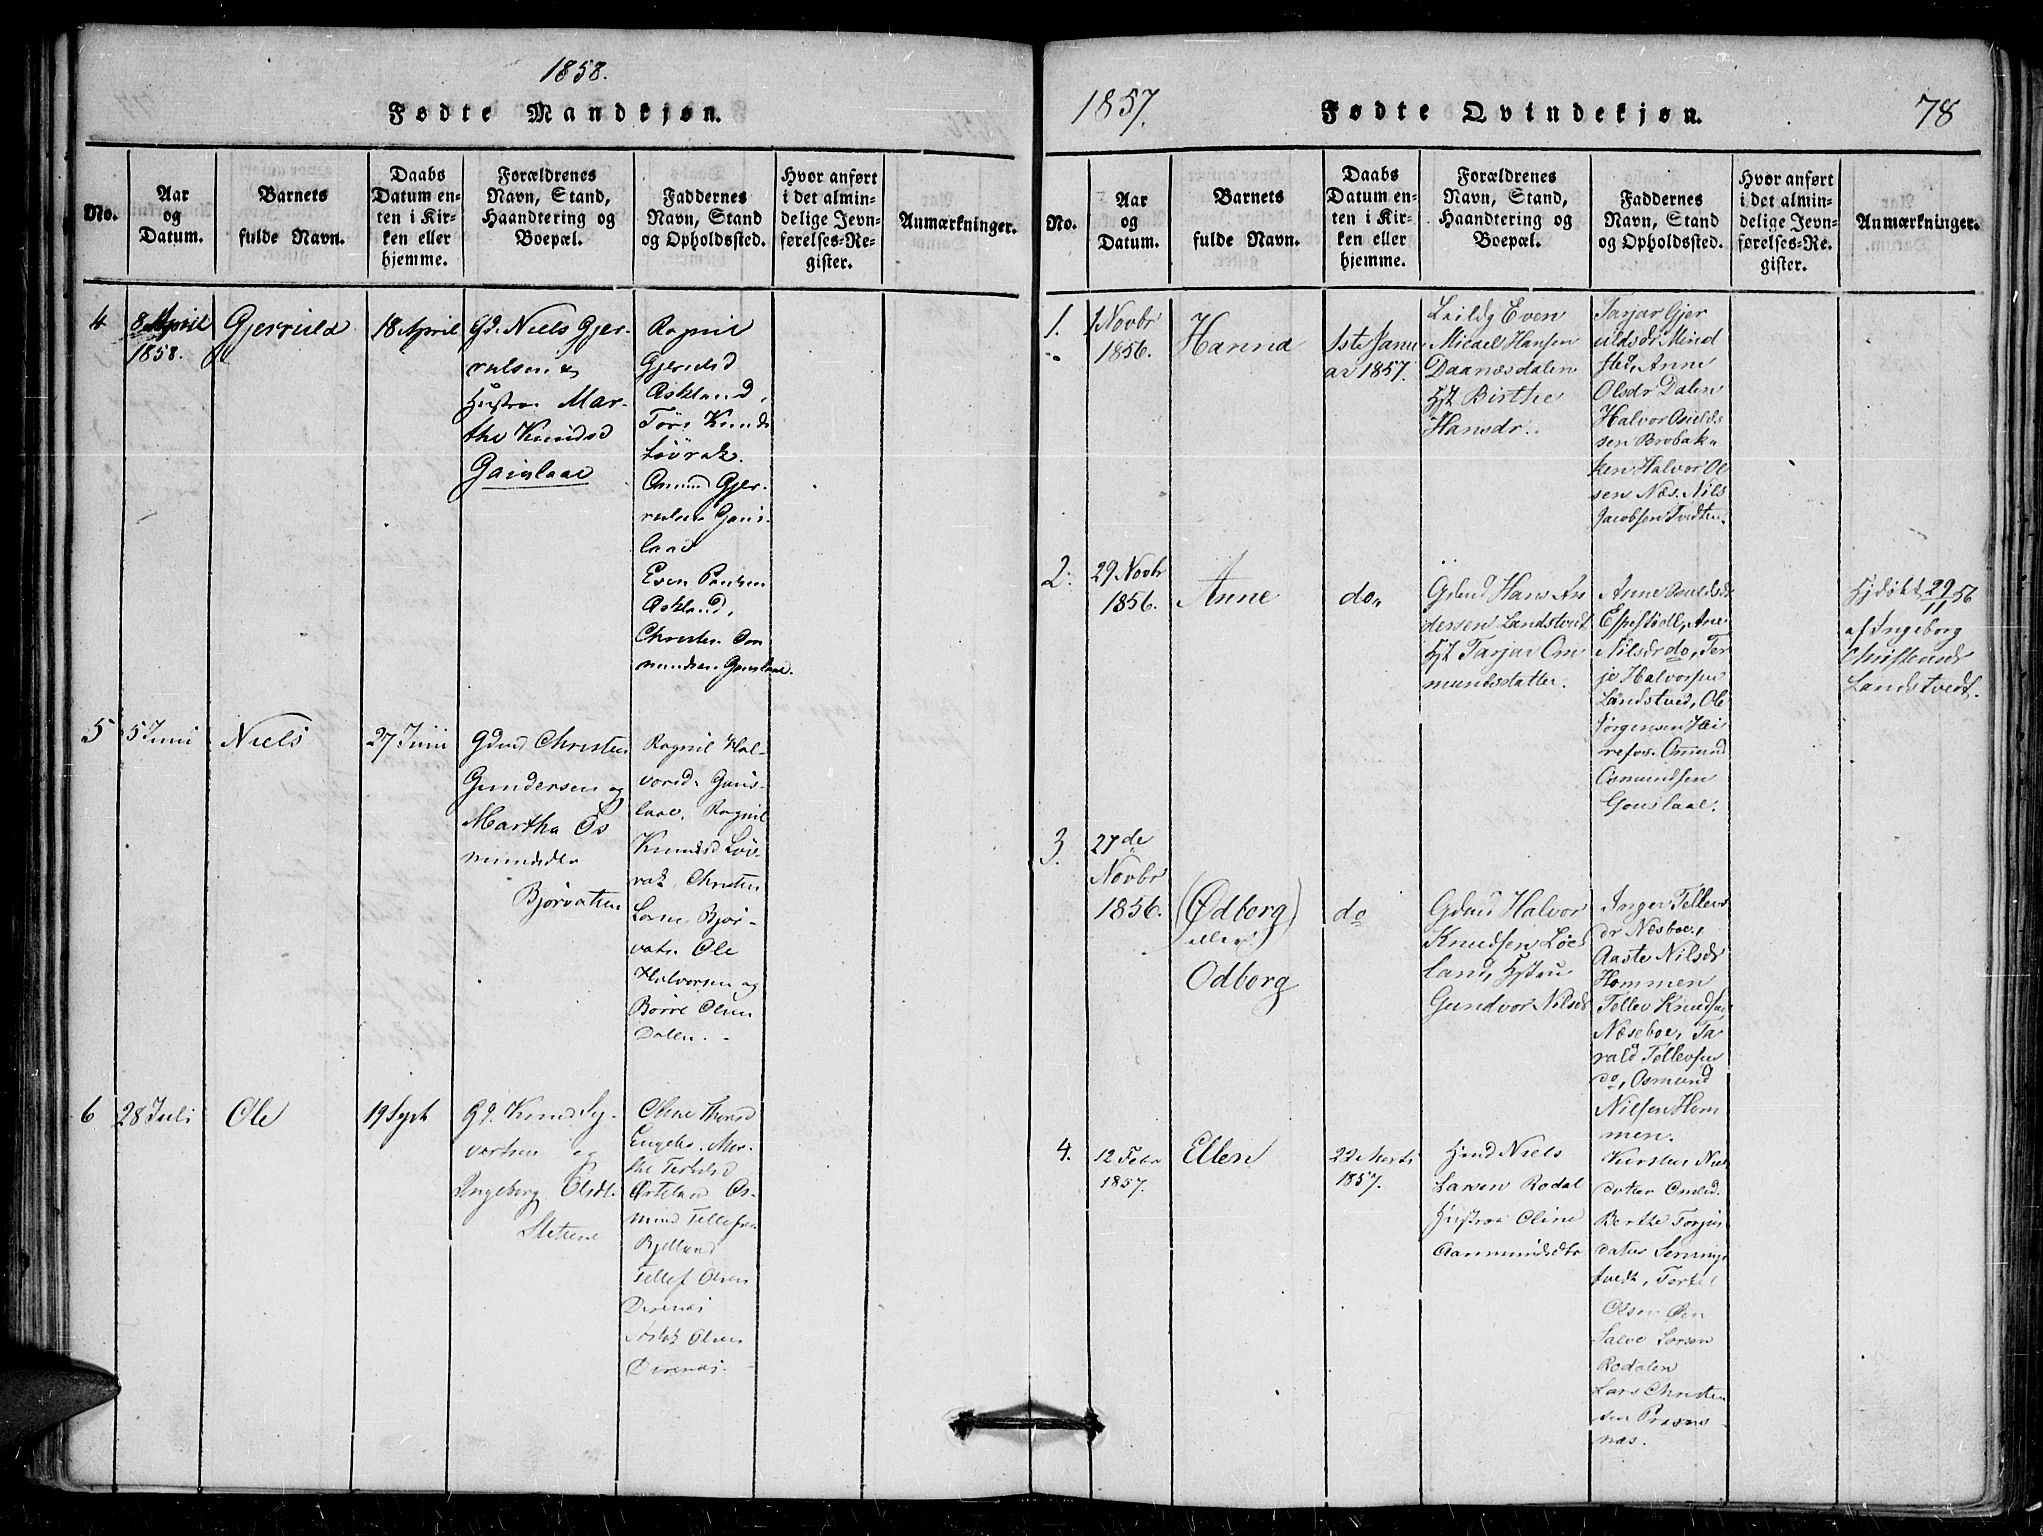 1858.
Fødte Mandkjøn.
No.
Aar
og
Datum.
Barnets
fulde Navn.
Daabs
Datum en-
ten i Kir-
ken eller
hjemme.
Forældrenes
Navn, Stand,
Haandtering og
Boepæl.
Faddernes
Navn, Stand
og Opholdssted.
Hvor anført
i det almin-
delige Jevn-
førelses-Re-
gister.
Anmærkninger.
4
8 April
1858.
Gjerruld
18 April
Gd. Niels Gjer-
rulsen &
Hustrue Mar-
the Knudsd
Gauslaae
Ragnil
Gjeruldsd
Askland,
Tore Knuds
Løvrak.
Omund Gjer-
rulsen Gaus-
laae
Even Paulsen
Askland,
Christen Om
mundsen Gauslaae.
5
5 Juni
Niels
27 Juni
Gdmd Christen
Gundersen og
Martha Os
mundsdtr
Bjorvatten
Ragnil Hal-
vorsd. Gaus-
laae. Ragnil
Knudsd Løv-
rak, Christen
Bjor-
vatn Ole
Halvorsen og
Børre Olsen
Dalen. -
6
28 Juli
Ole
19 Sept
Gd. Knud Sy-
vertsen og
Ingeborg Olsdt.
Olene
Mar-
the Terkelsd
Os-
mund Tellefsen
Bjelland
Tellef Olsen
Direnæs
Aslak Olsen
Direnæs.
1857.
Fødte Qvindekjøn.
78
No.
Aar
og
Datum.
Barnets
fulde Navn.
Daabs
Datum en-
ten i Kir-
ken eller
hjemme.
Forældrenes
Navn, Stand,
Haandtering og
Boepæl.
Faddernes
Navn, Stand
og Opholdssted.
Hvor anført
i det almin-
delige Jevn-
førelses-Re-
gister.
Anmærkninger.
1.
1 Novbr
1856.
Hanna
1ste Janu
ar 1857.
Leildg Even
Micael Hansen
Daanæsdalen
Hst Birthe
Hansdr.
Tarjar Gjer
uldsdr Mind
sted, Anne
Olsdr Dalen
Halvor Osulds
sen Brobak-
ken Halvor Ol
sen Næs. Nils
Jacobsen Tvedten.
2.
29 Novbr
1856.
Anne
do.
Gdmd Hans An
dersen Landstvedt
Hst Tarjar Om
mundsdatter.
Anne Osuldsdr
Espestøel, Ane
Nilsdr do, Ter
je Halvorsen
Landstved, Ole
Jørgensen Hei
refos. Osmund
Osmundsen
Gouslaae.
Hjdøbt 29/11 56
af Ingeborg
Christensdr
Landstvedt.
3.
27de
Novbr
1856.
(Ødborg)
eller
Odborg
do
Gdmd Halvor
Knudsen Løv
land, Hstru
Gundvor Nilsdr
Inger Tellevs
dr Næsboe,
Aaste Nilsdr
Hommen
Tellev Knudsen
Næseboe, Ta
rald Tellevsen
do, Osmund
Nilsen Hom
men.
4.
12 Febr
1857.
Ellen
22 Marts
1857.
Hmd Niels
Larsen Rodal
Hustrue Oline
Aanmundsdtr
Kirsten Niels
datter Omlid.
Berthe Torjus
datter Senning-
tvedt, Torkel
Olsen Øen
Salve Larsen
Rodalen
Lars Christen
sen
næs.